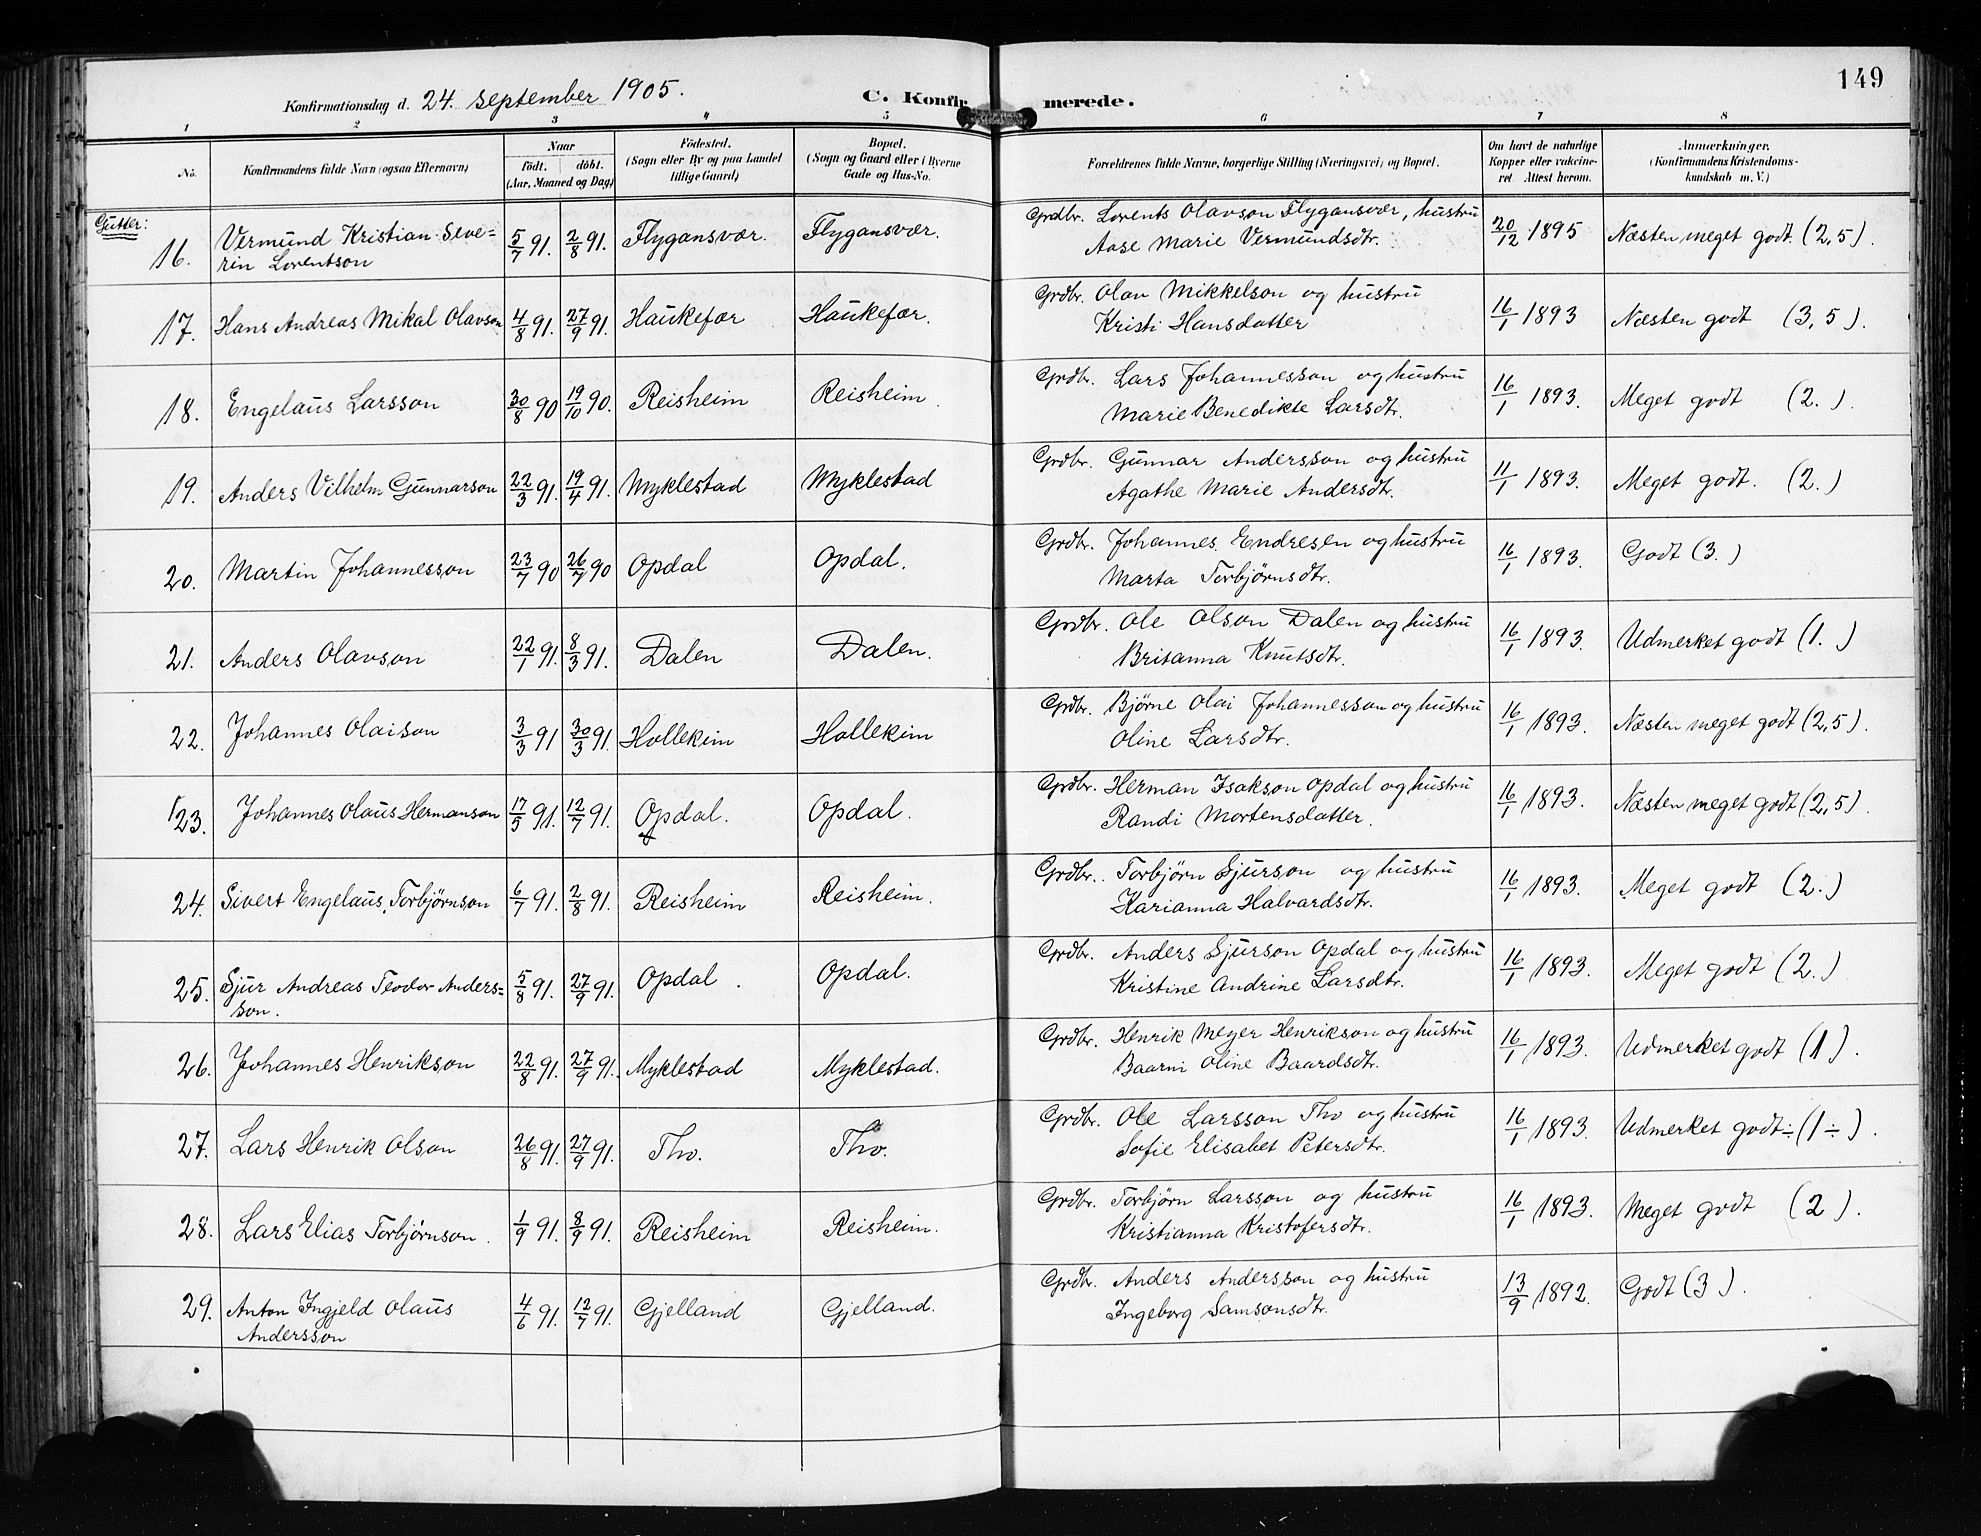 149
Konfirmationsdag d. 24. september 1905.
C. Konfirmerede.
1 2 3 4 5 6 7 8
No. Konfirmandens fulde Navn (ogsaa Efternavn) Naar født. døbt. (Aar, Maaned og Dag) Fødested. (Sogn eller By og paa Landet tillige Gaard) Bopæl. (Sogn og Gaard eller i Byerne Gade og Hus-No. Forældrenes fulde Navne, borgerlige Stilling (Næringsvei) og Bopæl. Om havt de naturlige Kopper eller vakcineret. Attest herom. Anmerkninger. (Konfirmandens Kristendomskundskab m. V.)
Gutter:
16. Vermund Kristian Seve= 5/7 91. 2/8 91. Flygansvær. Flygansvær. Grdbr. Lorents Olavson Flygansvær, hustru 20/12 1895 Næsten meget godt. (2,5).
rin Lorentson Aase Marie Vermundsdtr.
17. Hans Andreas Mikal Olavson 4/8 91. 27/9 91. Haukefær Haukefær. Grdbr. Olav Mikkelson og hustru 16/1 1893 Næsten godt (3,5).
Kristi Hansdatter
18. Engelaus Larsson 30/8 90 19/10 90. Reisheim Reisheim. Grdbr. Lars Johannesson og hustru 16/1 1893. Meget godt (2.).
Marie Benedikte Larsdtr.
19. Anders Vilhelm Gunnarson 22/3 91. 19/4 91. Myklestad Myklestad Grdbr. Gunnar Andersson og hustru 11/1 1893. Meget godt. (2.)
Agathe Marie Andersdtr.
20. Martin Johannesson 23/7 90 26/7 90 Opdal Opdal. Grdbr. Johannes Endresen og hustru 16/1 1893. Godt (3.)
Marta Torbjørnsdtr.
21. Anders Olavson 22/1 91. 8/3 91. Dalen Dalen. Grdbr. Ole Olson Dalen og hustru 16/1 1893. Udmerket godt (1.)
Britanna Knutsdtr.
22. Johannes Olaison 3/3 91 30/3 91. Hollekim Hollekim Grdbr. Bjørne Olai Johannesson og hustru 16/1 1893. Næsten meget godt (2,5).
Oline Larsdtr.
23. Johannes Olaus Hermanson 17/5 91. 12/7 91. Opdal. Opdal. Grdbr. Herman Isakson Opdal og hustru 16/1 1893. Næsten meget godt (2,5).
Randi Mortensdatter.
24. Sivert Engelaus Torbjørnson 6/7 91. 2/8 91. Reisheim Reisheim. Grdbr. Torbjørn Sjurson og hustru 16/1 1893. Meget godt (2.)
Karianna Halvardsdtr.
25. Sjur Andreas Teodor Anders= 5/8 91. 27/9 91. Opdal. Opdal. Grdbr. Anders Sjurson Opdal og hustru 16/1 1893. Meget godt (2.)
son. Kristine Andrine Larsdtr.
26. Johannes Henrikson 22/8 91. 27/9 91. Myklestad Myklestad. Grdbr. Henrik Meyer Henrikson og hustru 16/1 1893. Udmerket godt (1).
Baarni Oline Baardsdtr.
27. Lars Henrik Olson 26/8 91. 27/9 91. Tho. Tho. Grdbr. Ole Larsson Tho og hustru 16/1 1893. Udmerket godt÷ (1÷).
Sofie Elisabet Petersdtr.
28. Lars Elias Torbjørnson. 1/9 91. 8/9 91. Reisheim Reisheim. Grdbr. Torbjørn Larsson og hustru 16/1 1893. Meget godt (2).
Kristianna Kristofersdtr.
29. Anton Ingjeld Olaus 4/6 91. 12/7 91. Gjelland Gjelland. Grdbr. Anders Andersson og hustru 13/9 1892. Godt (3).
Andersson Ingeborg Samsonsdtr.